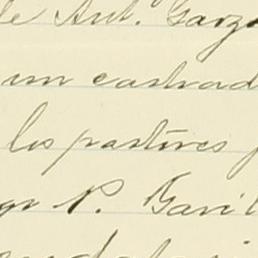 de Ant. Garza
un castrad
los pastores
P. Gavil